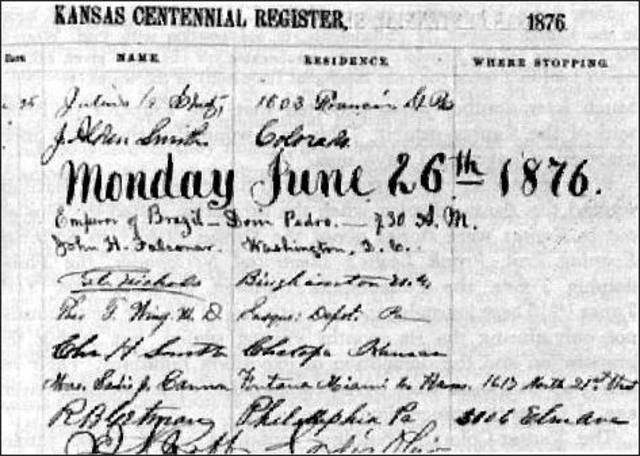 KANSAS CENTENNIAL REGISTER, 1876.
Date NAME. RESIDENCE. WHERE STOPPING.
25 Julius 1603 Francis St
J. Alden Smith Colorado
Monday June 26th 1876.
Emperor of Brazil — Dom Pedro. — 7.30 A. M.
John H. Falconar. Washington, D. C.
Nichols Binghamton N.Y.
Theo F. Wing M. D Susque: Depot. Pa
Chas H Smith Chetopa Kansas
Mrs. Sadie J. Cannon Fontana Miami Co Kans. 1613 North 21st Street
R B Philadelphia Pa 3106 Elm Ave
Ohio